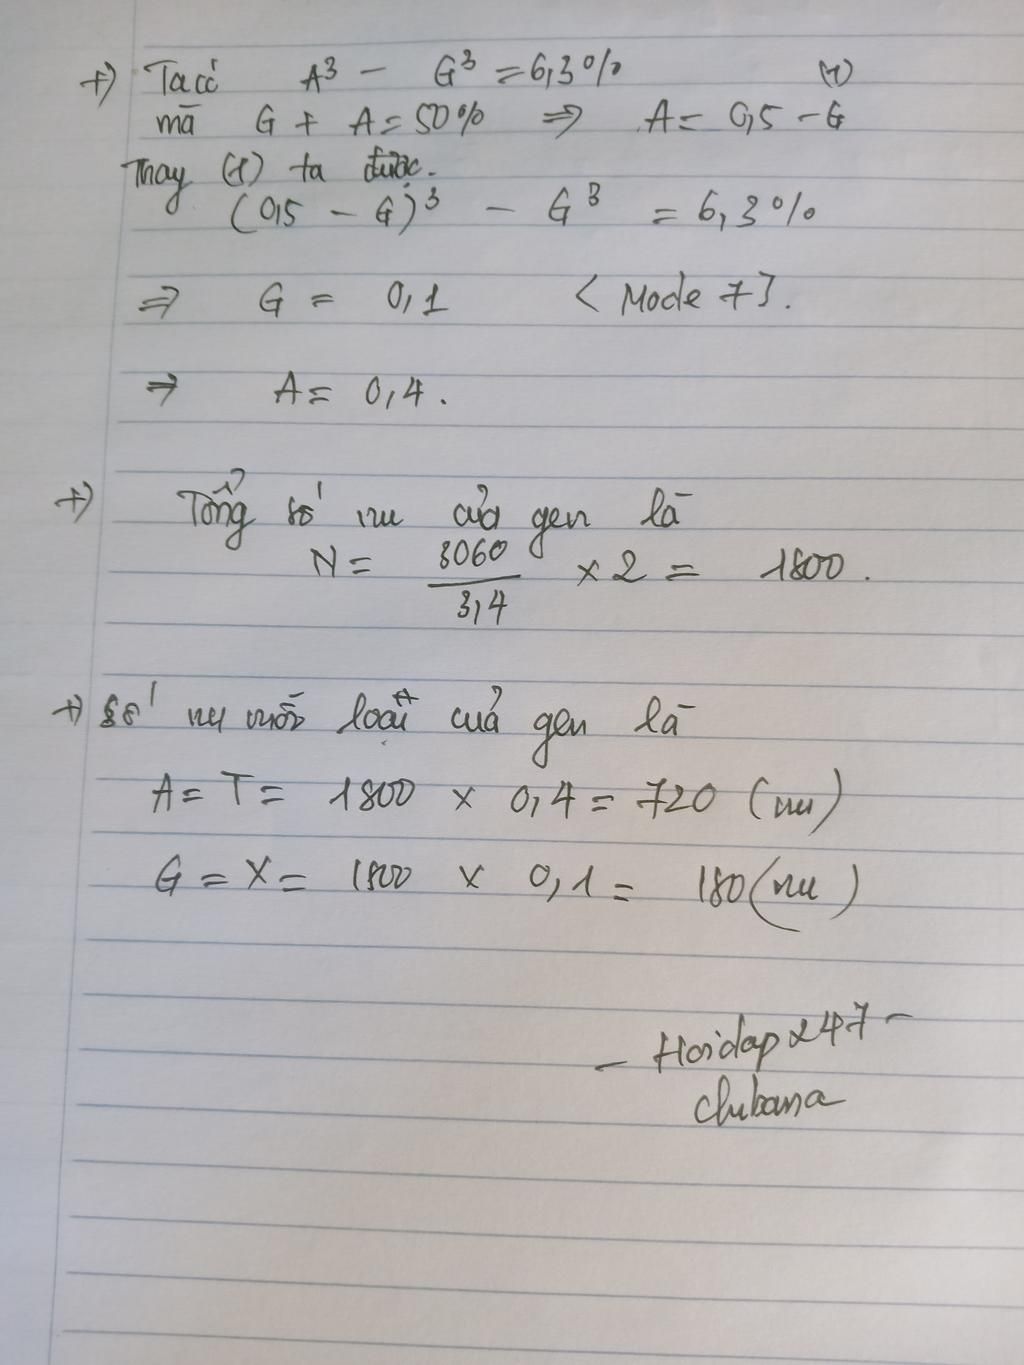 +) Ta có A³ - G³ = 6,3% (1)
mà G + A = 50% => A = 0,5 - G
Thay (1) ta được.
(0,5 - G)³ - G³ = 6,3%
=> G = 0,1 < Mode 7}.
=> A = 0,4.
+) Tổng số nu của gen là
N = 3060 / 3,4 x 2 = 1800.
+) Số nu mỗi loại của gen là
A = T = 1800 x 0,4 = 720 (nu)
G = X = 1800 x 0,1 = 180 (nu)
- Hoidap247 -